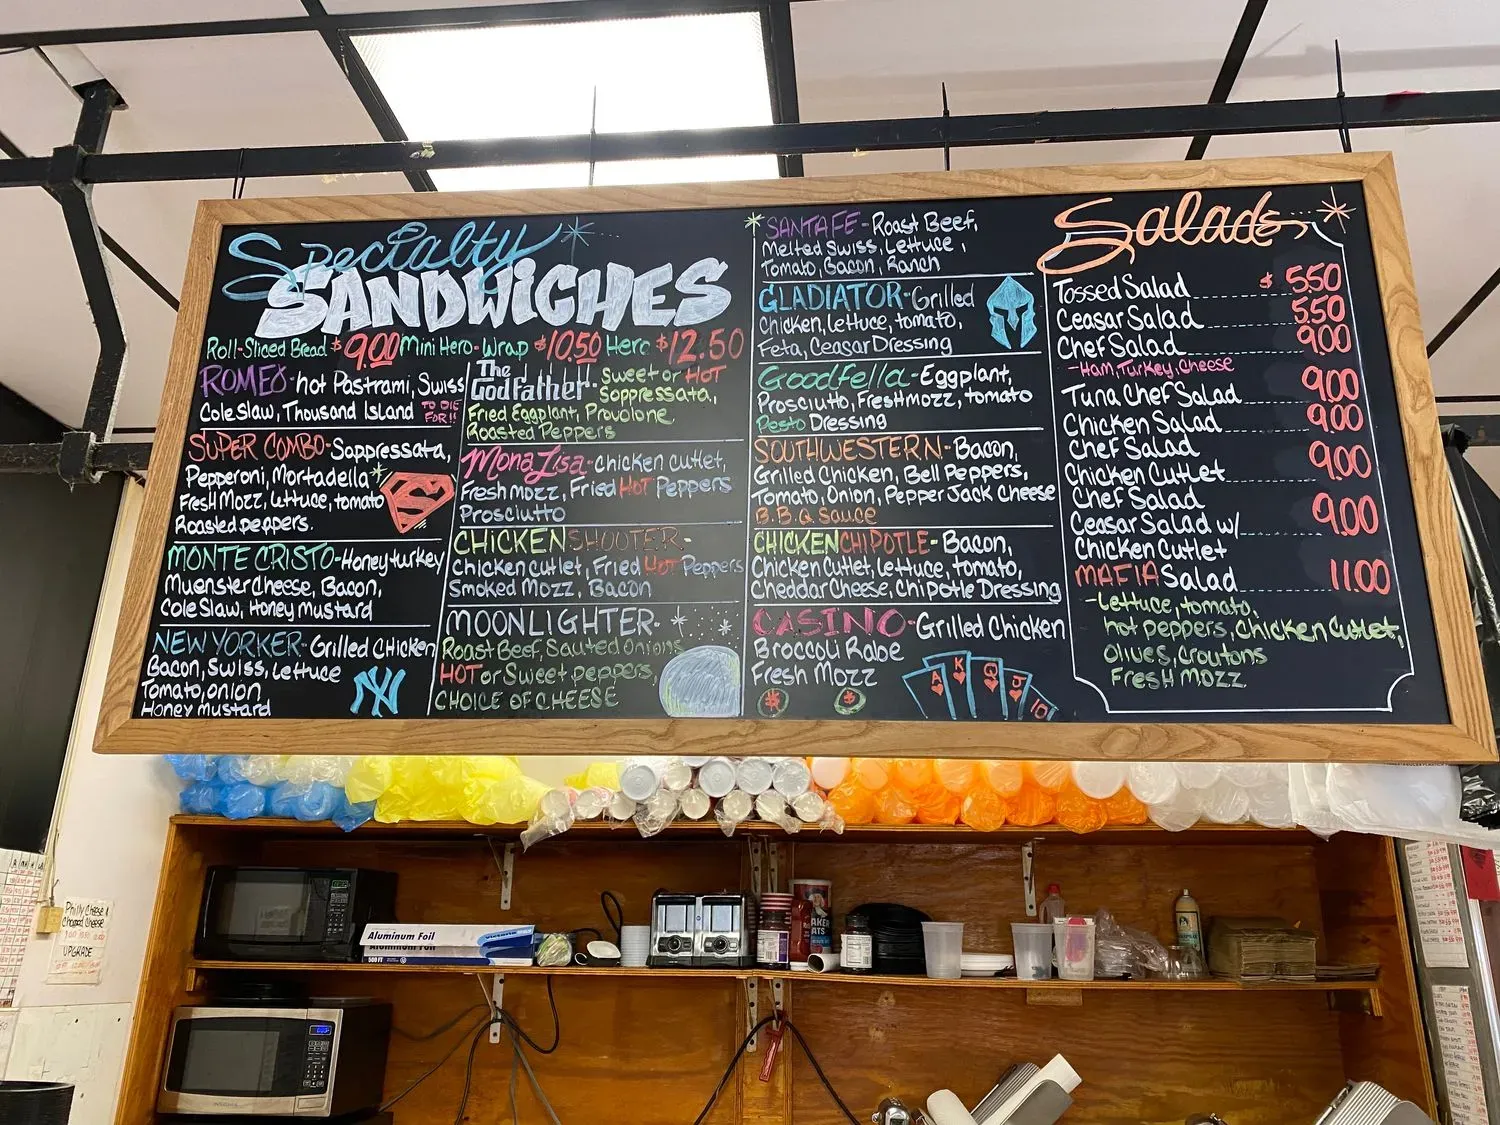 Specialty
SANDWICHES
Roll-Sliced Bread $9.00 Mini Hero-Wrap $10.50 Hero $12.50
ROMEO-hot Pastrami, Swiss
Cole Slaw, Thousand Island TO DIE
FOR!!
SUPER COMBO-Soppressata,
Pepperoni, Mortadella
Fresh Mozz, Lettuce, tomato
Roasted peppers.
S
MONTE CRISTO-Honey turkey
Muenster Cheese, Bacon,
Cole Slaw, Honey mustard
NEW YORKER-Grilled Chicken
Bacon, Swiss, Lettuce
Tomato, onion
Honey mustard
NY
The
GodFather-Sweet or HOT
Soppressata,
Fried Eggplant, Provolone,
Roasted Peppers
Mona Lisa-Chicken Cutlet,
Fresh mozz, Fried HOT Peppers
Prosciutto
CHICKEN SHOOTER-
Chicken Cutlet, Fried HOT Peppers
Smoked Mozz, Bacon
MOONLIGHTER-
Roast Beef, Sauted Onions
HOT or Sweet peppers,
CHOICE OF CHEESE
SANTA FE-Roast Beef,
Melted Swiss, Lettuce,
Tomato, Bacon, Ranch
GLADIATOR-Grilled
Chicken, lettuce, tomato,
Feta, Ceasar Dressing
Goodfella-Eggplant,
Prosciutto, Fresh mozz, tomato
Pesto Dressing
SOUTHWESTERN-Bacon,
Grilled Chicken, Bell Peppers,
Tomato, Onion, Pepper Jack Cheese
B.B.Q Sauce
CHICKEN CHIPOTLE-Bacon,
Chicken Cutlet, Lettuce, tomato,
Cheddar Cheese, Chipotle Dressing
CASINO-Grilled Chicken
Broccoli Rabe
Fresh Mozz
$ $
A K Q J 10
Salads
Tossed Salad $ 5.50
Ceasar Salad 5.50
Chef Salad 9.00
-Ham, Turkey, Cheese
Tuna Chef Salad 9.00
Chicken Salad 9.00
Chef Salad
Chicken Cutlet 9.00
Chef Salad
Ceasar Salad w/ 9.00
Chicken Cutlet
MAFIA Salad 11.00
-Lettuce, tomato,
hot peppers, Chicken Cutlet,
Olives, Croutons
Fresh mozz
Philly Cheese
Chopped Cheese
UPGRADE
Aluminum Foil
500 FT